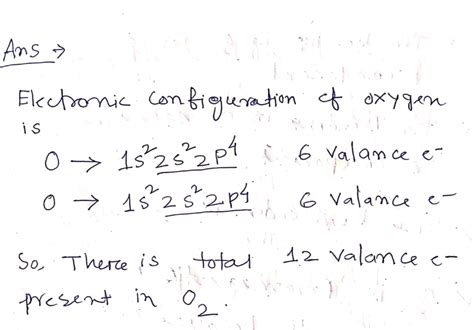 Ans →
Electronic configuration of oxygen
is
O → 1s² 2s² 2p⁴ 6 valance e-
O → 1s² 2s² 2p⁴ 6 valance e-
So, There is total 12 valance e-
present in O₂.